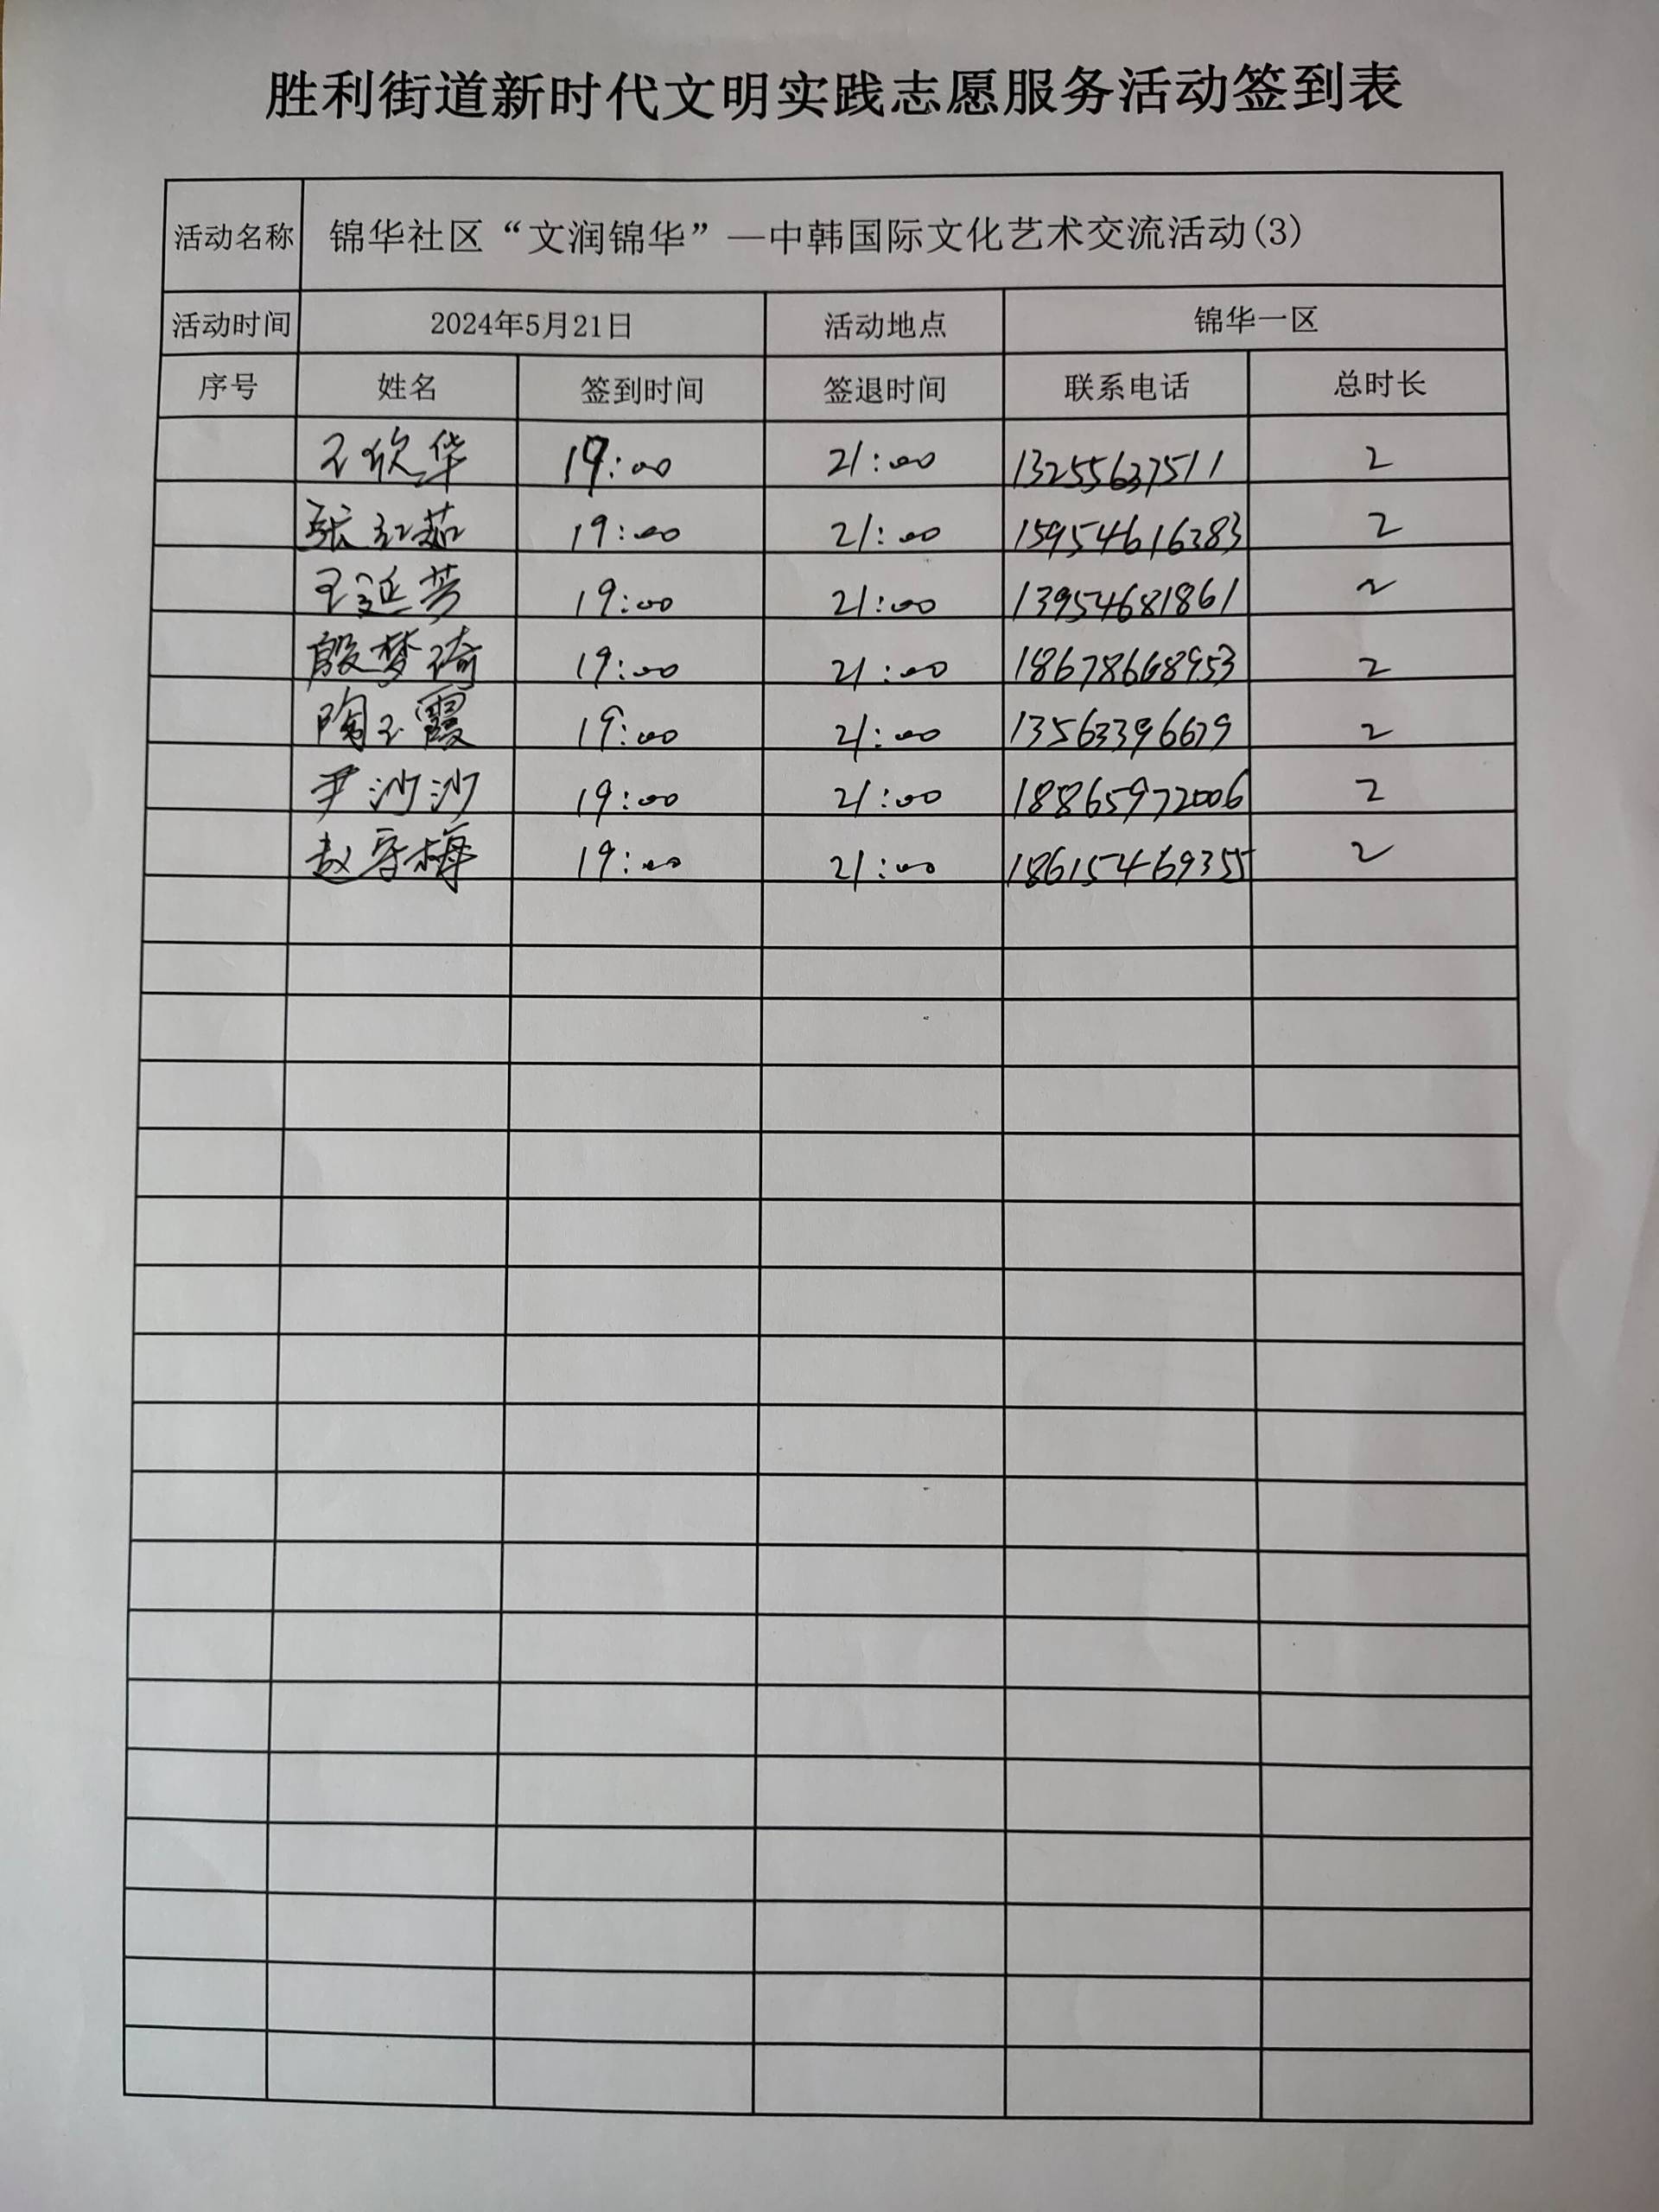 胜利街道新时代文明实践志愿服务活动签到表
活动名称 锦华社区“文润锦华”—中韩国际文化艺术交流活动(3)
活动时间 2024年5月21日 活动地点 锦华一区
序号 姓名 签到时间 签退时间 联系电话 总时长
王欣华 19:00 21:00 13255637511 2
张红茹 19:00 21:00 15954616383 2
王延芳 19:00 21:00 13954681861 2
殷梦琦 19:00 21:00 18678668953 2
陶玉霞 19:00 21:00 13563396679 2
尹沙沙 19:00 21:00 18865972006 2
赵 梅 19:00 21:00 18615469355 2